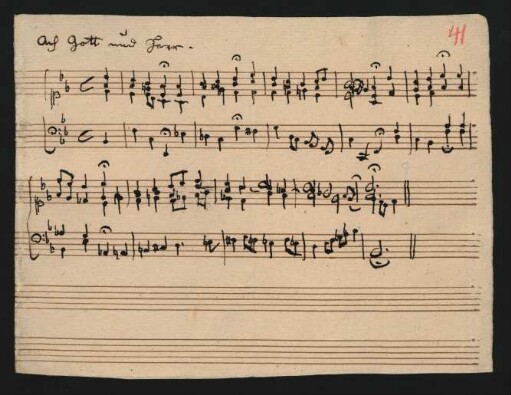 Ach Gott und Herr.
41